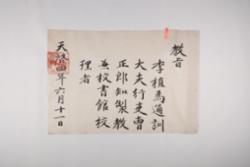 教旨
李植爲通訓
大夫行吏曹
正郎知製教
兼校書館校
理者
天啓四年六月十一日